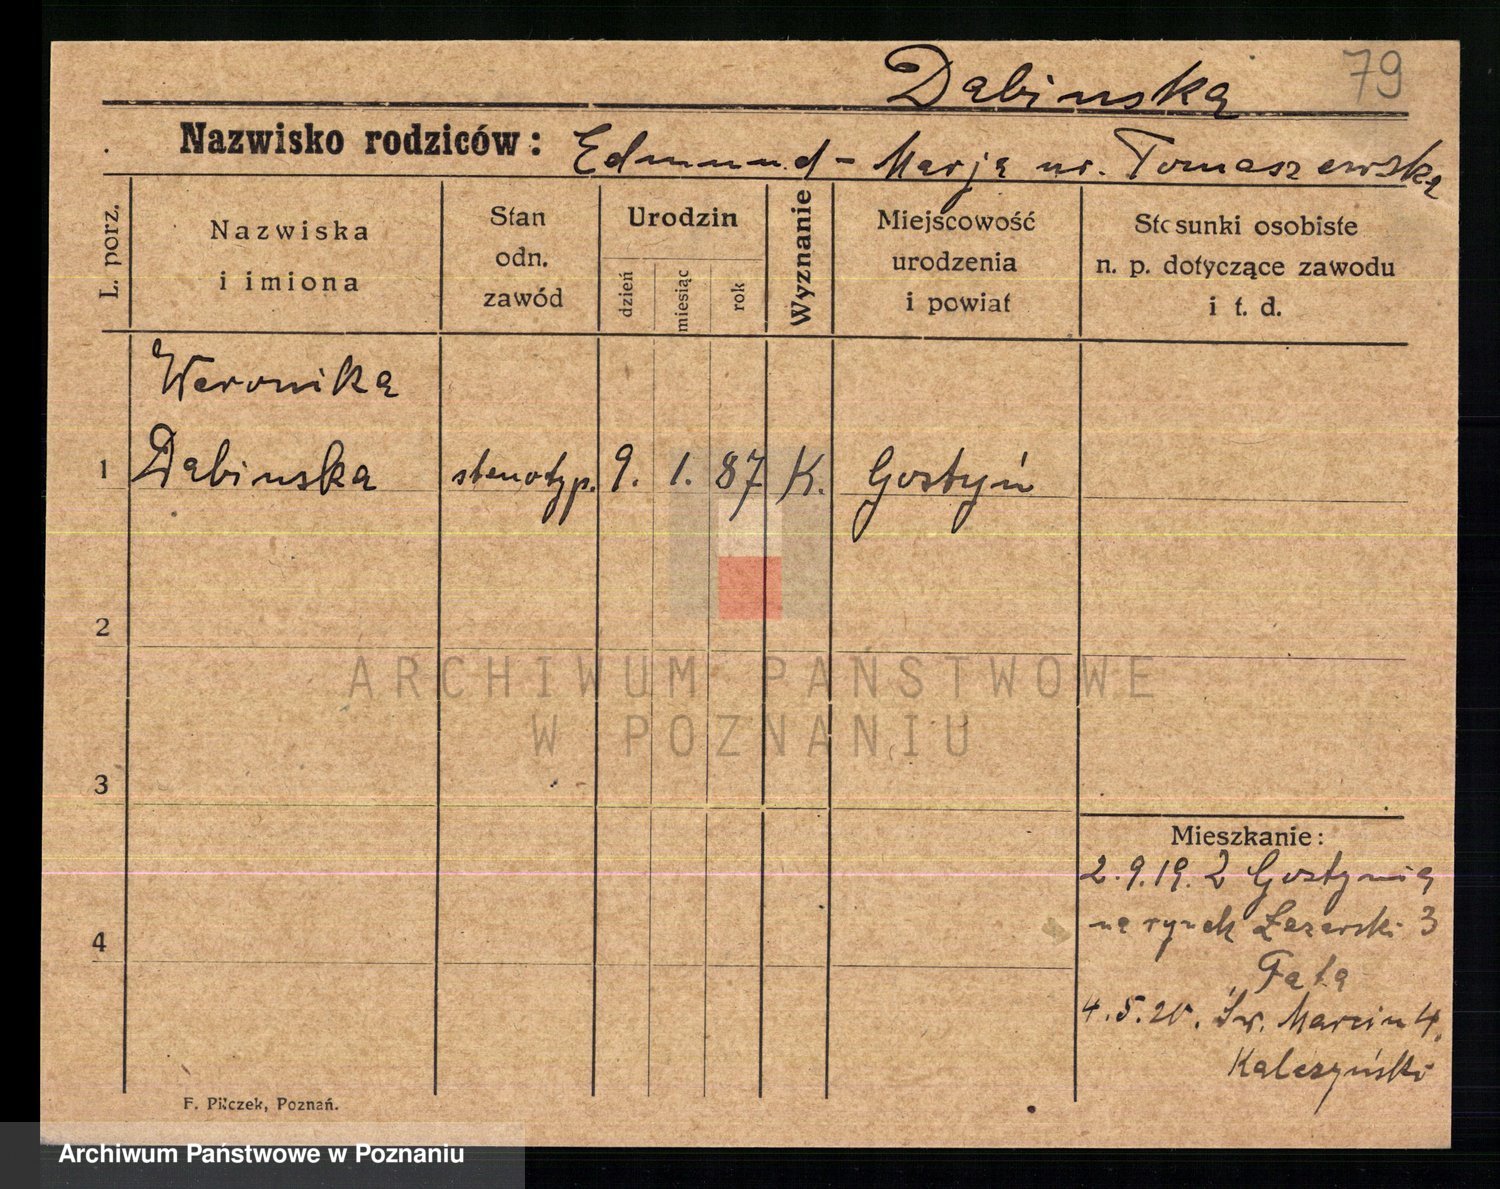 Dabinska
79
Nazwisko rodziców: Edmund - Marja ur. Tomaszewska
L. porz.
Nazwiska
i imiona
Stan
odn.
zawód
Urodzin
dzień
miesiąc
rok
Wyznanie
Miejscowość
urodzenia
i powiat
Stosunki osobiste
n. p. dotyczące zawodu
i t. d.
Weronika
1 Dabinska stenotyp. 9. 1. 87 K. Gostyń
2
ARCHIWUM PAŃSTWOWE
W POZNANIU
3
4
Mieszkanie:
2.9.19. Z Gostynia
na rynek Łazarski 3
4.5.20. Św. Marcin 4.
F. Pilczek, Poznań.
Archiwum Państwowe w Poznaniu